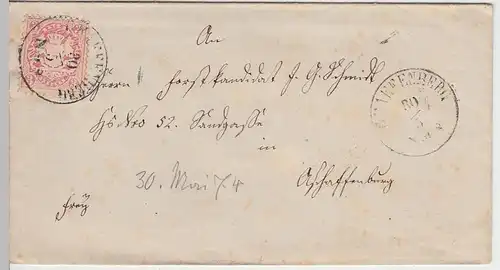 An
Herrn Forstkandidat J. G. Schmidt
Hs Nro 52. Sandgasse
in
Aschaffenburg
frei
30. Mai 74
30
5